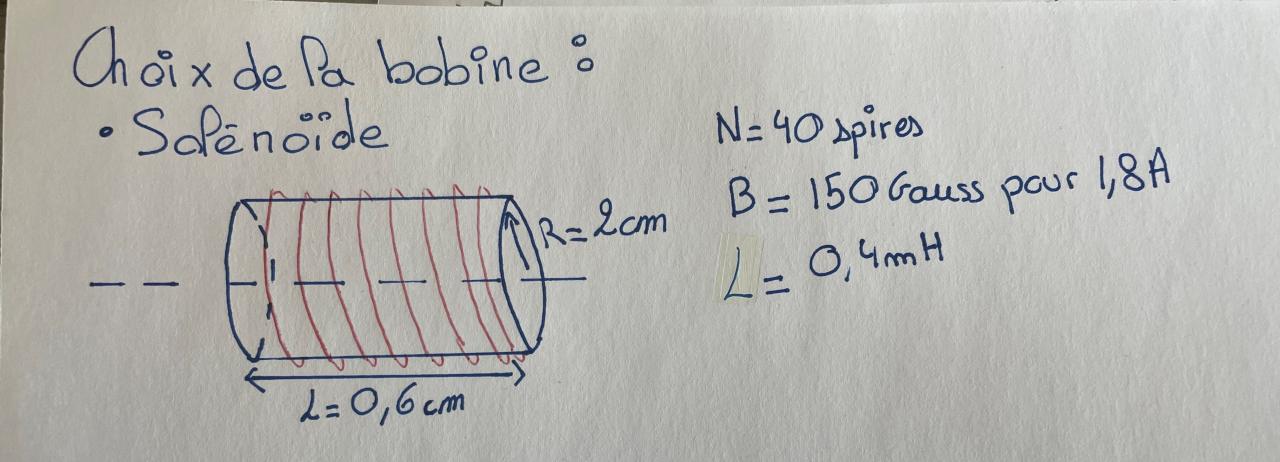 Choix de la bobine :
• Solénoïde
N = 40 spires
B = 150 Gauss pour 1,8A
L = 0,4mH
R = 2cm
L = 0,6 cm